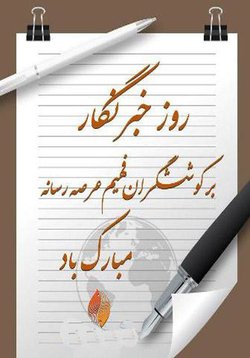 روز خبرنگار
بر کوششگران فهیم عرصه رسانه
مبارک باد